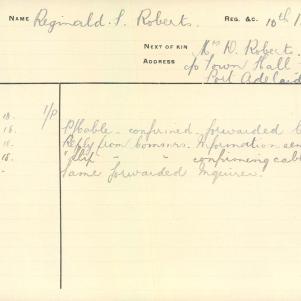 NAME Reginald. S. Roberts. REG. &C. 10th
NEXT OF KIN Mrs D. Roberts
ADDRESS c/o Town Hall
Port Adelaid
1/P
P/Cable - confirmed - forwarded
16. Reply from Comsnrs. Information sen
16. "slip" - " - confirming cab
Same forwarded Inquirer.